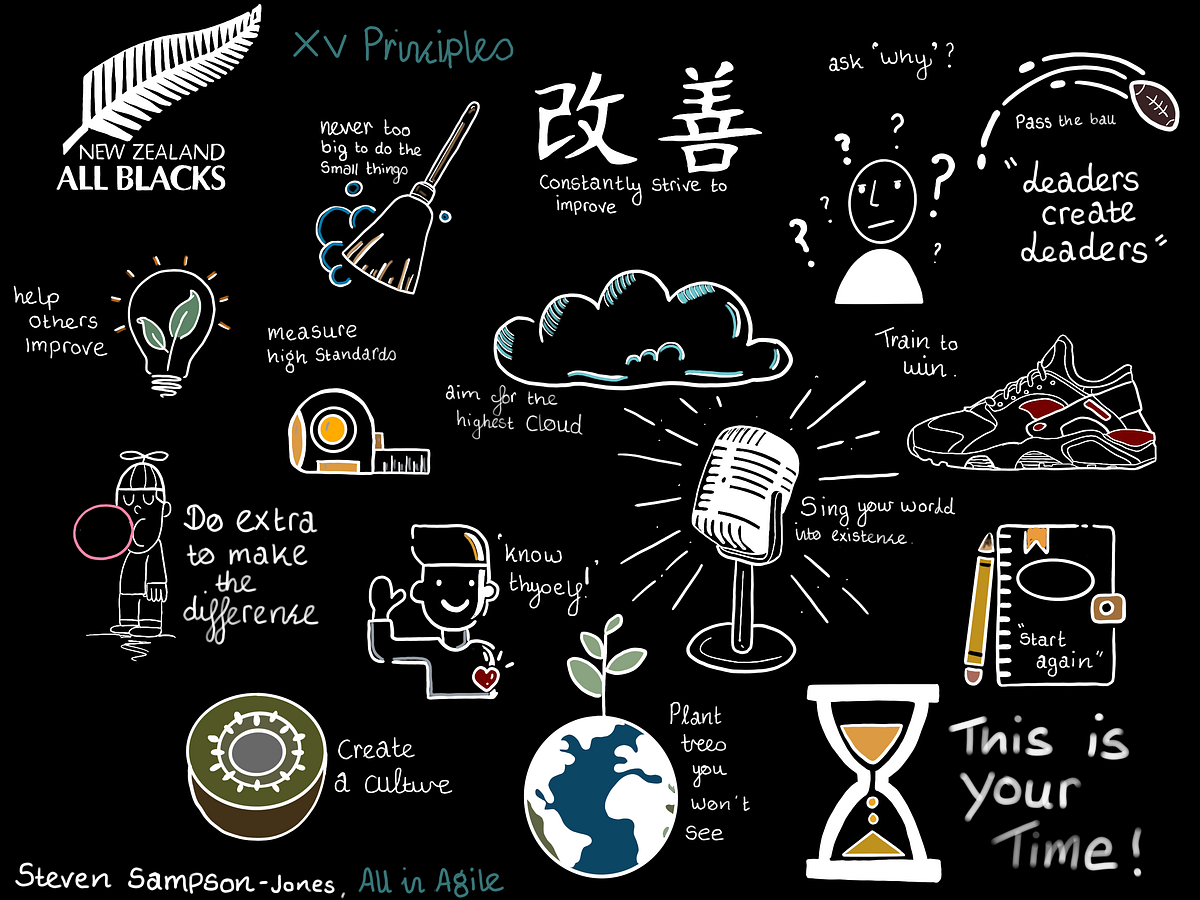 XV Principles
NEW ZEALAND
ALL BLACKS
never too
big to do the
small things
改善
Constantly strive to
improve
ask 'why'?
Pass the ball
"leaders
create
leaders"
help
others
improve
measure
high standards
aim for the
highest cloud
Train to
win.
Do extra
to make
the
difference
'know
thyself!'
Sing your world
into existence.
"Start
again"
Create
a culture
Plant
trees
you
won't
see
This is
your
Time!
Steven Sampson-Jones, All in Agile